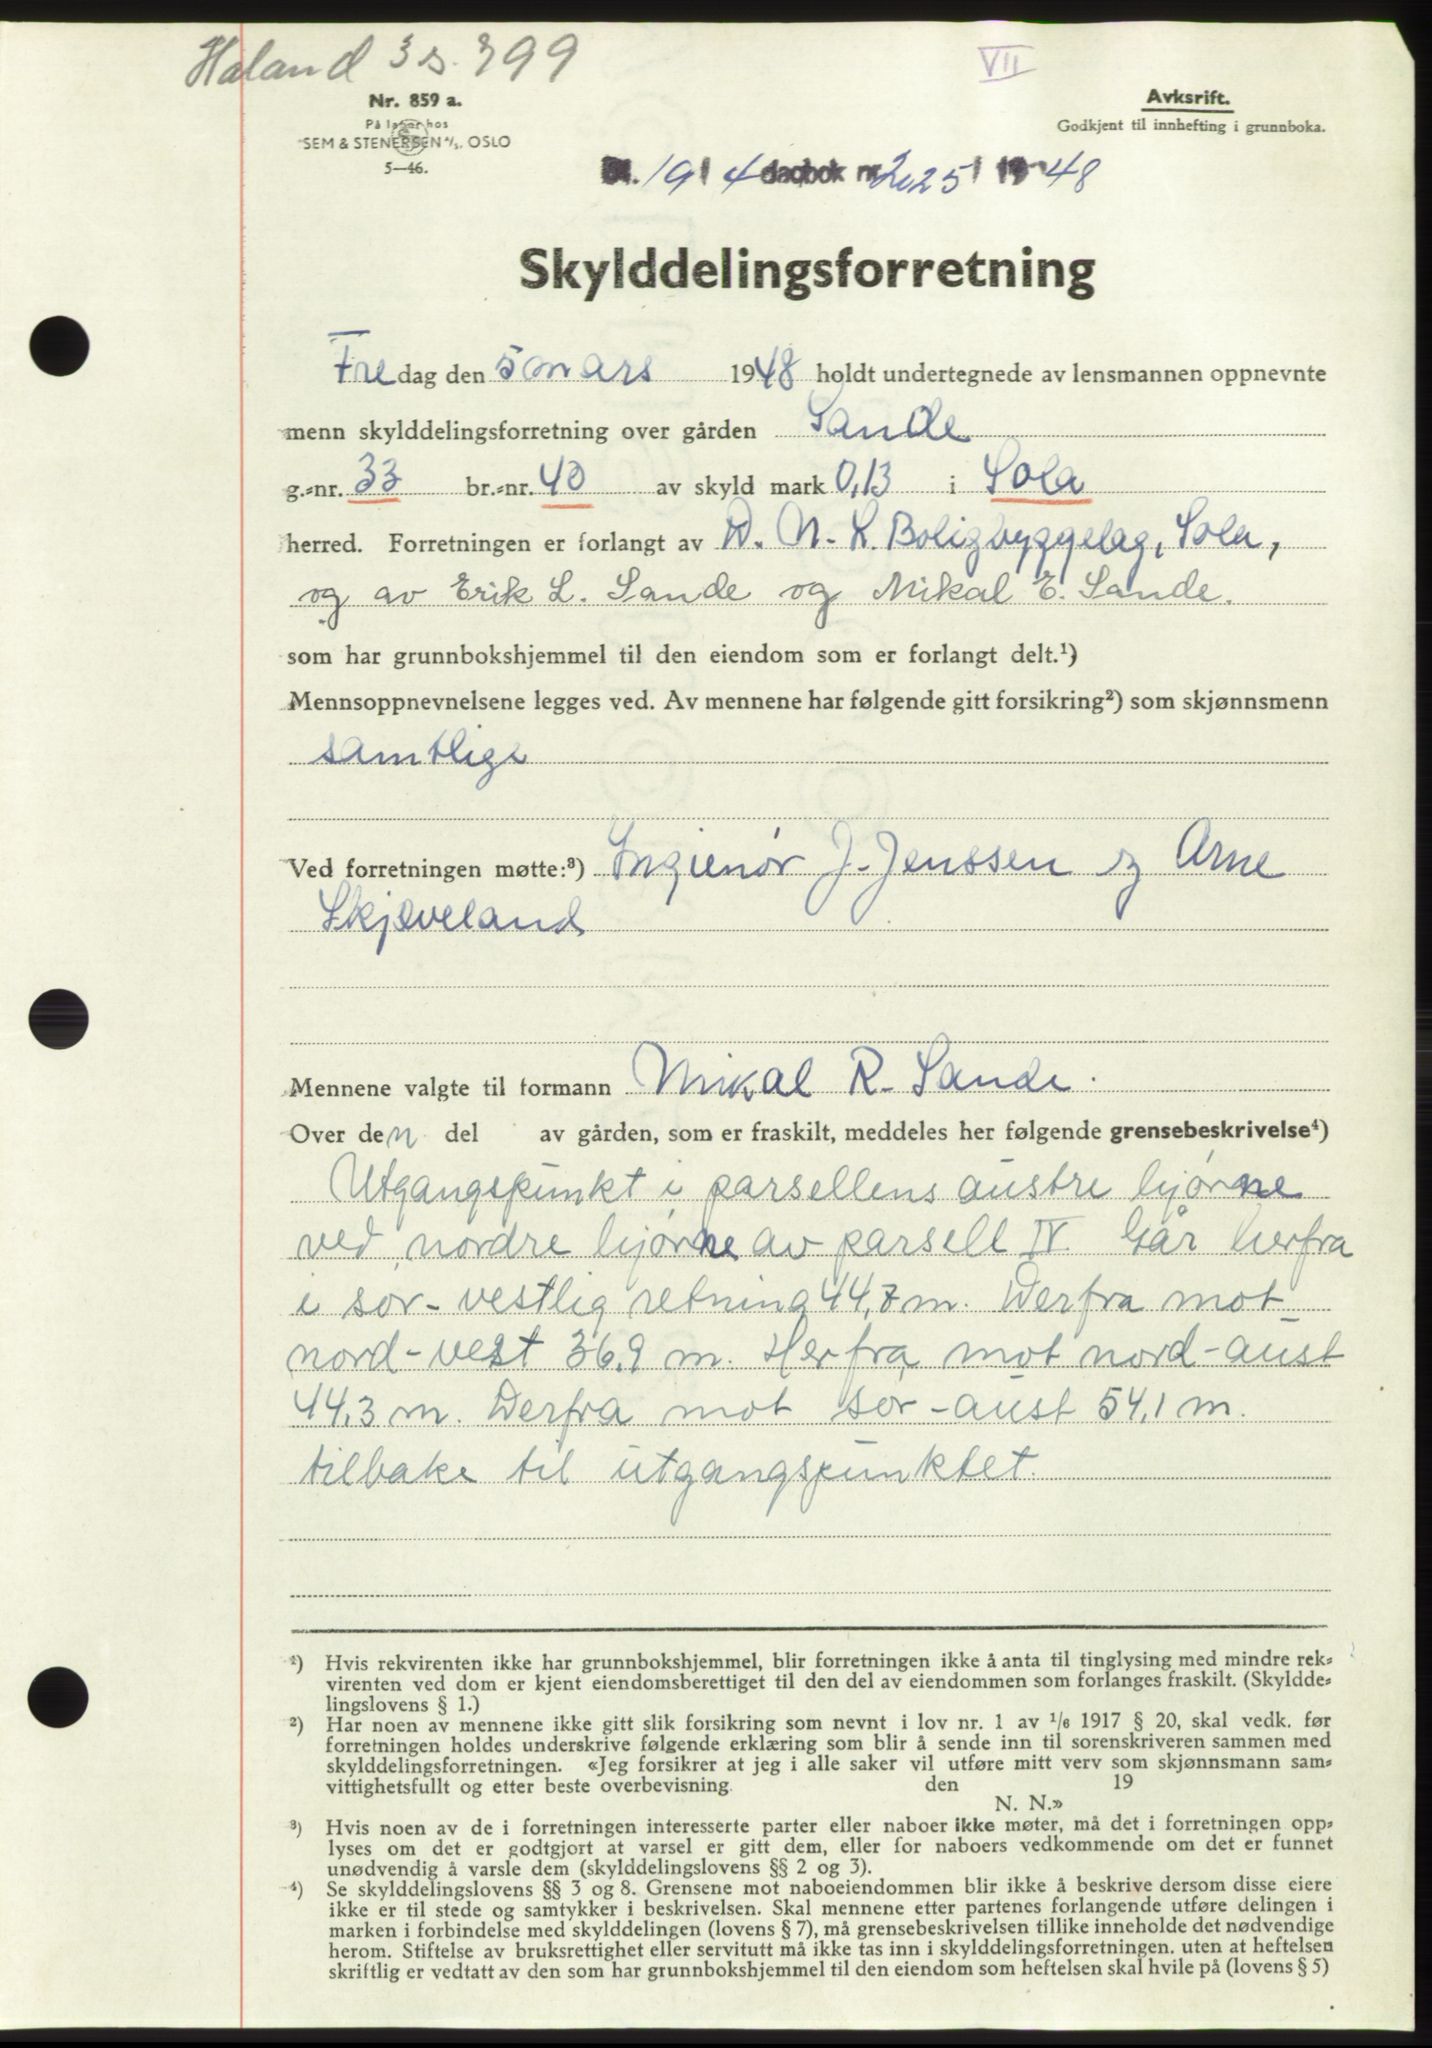 Håland 3 s. 399
VII
Nr. 859 a.
På lager hos
SEM & STENERSEN A/S, OSLO
5—46.
Avksrift.
Godkjent til innhefting i grunnboka.
19 / 4 dagbok nr. 2025 / 19 48
Skylddelingsforretning
Fredag den 5 mars 1948 holdt undertegnede av lensmannen oppnevnte
menn skylddelingsforretning over gården Sande
g.=nr. 33 br.=nr. 40 av skyld mark 0,13 i Sola
herred. Forretningen er forlangt av D. N. L. Boligbyggelag, Sola,
og av Erik L. Sande og Mikal E. Sande.
som har grunnbokshjemmel til den eiendom som er forlangt delt.¹)
Mennsoppnevnelsene legges ved. Av mennene har følgende gitt forsikring²) som skjønnsmenn
samtlige
Ved forretningen møtte:³) Ingienør J. Jenssen og Arne
Skjæveland
Mennene valgte til formann Mikal R. Sande.
Over den del av gården, som er fraskilt, meddeles her følgende grensebeskrivelse⁴)
Utgangspunkt i parsellens austre hjørne
ved nordre hjørne av parsell IV. Går herfra
i sør-vestlig retning 44,7 m. Derfra mot
nord-vest 36,9 m. Herfra mot nord-aust
44,3 m. Derfra mot sør-aust 54,1 m.
tilbake til utgangspunktet.
¹) Hvis rekvirenten ikke har grunnbokshjemmel, blir forretningen ikke å anta til tinglysing med mindre rek=
virenten ved dom er kjent eiendomsberettiget til den del av eiendommen som forlanges fraskilt. (Skyldde=
lingslovens § 1.)
²) Har noen av mennene ikke gitt slik forsikring som nevnt i lov nr. 1 av ¹/₆ 1917 § 20, skal vedk. før
forretningen holdes underskrive følgende erklæring som blir å sende inn til sorenskriveren sammen med
skylddelingsforretningen. «Jeg forsikrer at jeg i alle saker vil utføre mitt verv som skjønnsmann sam=
vittighetsfullt og etter beste overbevisning. den 19
N. N.»
³) Hvis noen av de i forretningen interesserte parter eller naboer ikke møter, må det i forretningen opp=
lyses om det er godtgjort at varsel er gitt dem, eller for naboers vedkommende om det er funnet
unødvendig å varsle dem (skylddelingslovens §§ 2 og 3).
⁴) Se skylddelingslovens §§ 3 og 8. Grensene mot naboeiendommen blir ikke å beskrive dersom disse eiere
ikke er til stede og samtykker i beskrivelsen. Skal mennene etter partenes forlangende utføre delingen i
marken i forbindelse med skylddelingen (lovens § 7), må grensebeskrivelsen tillike inneholde det nødvendige
herom. Stiftelse av bruksrettighet eller servitutt må ikke tas inn i skylddelingsforretningen. uten at heftelsen
skriftlig er vedtatt av den som har grunnbokshjemmel til den eiendom som heftelsen skal hvile på (lovens § 5)